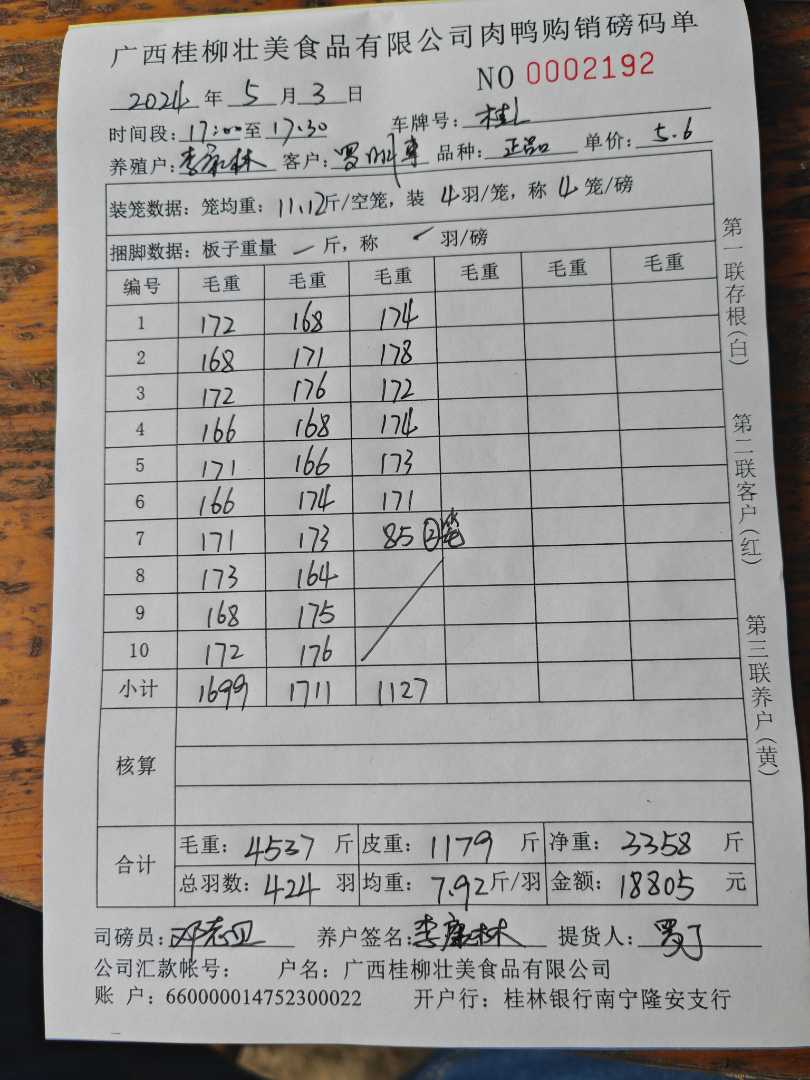 广西桂柳壮美食品有限公司肉鸭购销磅码单
NO 0002192
2024 年 5 月 3 日
时间段: 17:00 至 17.30 车牌号: 桂L
养殖户: 李康林 客户: 罗 品种: 正品 单价: 5.6
装笼数据: 笼均重: 11.12 斤/空笼, 装 4 羽/笼, 称 4 笼/磅
捆脚数据: 板子重量 — 斤, 称 羽/磅
编号 毛重 毛重 毛重 毛重 毛重 毛重
1 172 168 174
2 168 171 178
3 172 176 172
4 166 168 174
5 171 166 173
6 166 174 171
7 171 173 85 ②笼
8 173 164
9 168 175
10 172 176
小计 1699 1711 1127
核算
合计 毛重: 4537 斤 皮重: 1179 斤 净重: 3358 斤
总羽数: 424 羽 均重: 7.92 斤/羽 金额: 18805 元
司磅员: 邓志 养户签名: 李康林 提货人: 罗丁
公司汇款帐号: 户名: 广西桂柳壮美食品有限公司
账 户: 660000014752300022 开户行: 桂林银行南宁隆安支行
第一联存根(白)
第二联客户(红)
第三联养户(黄)